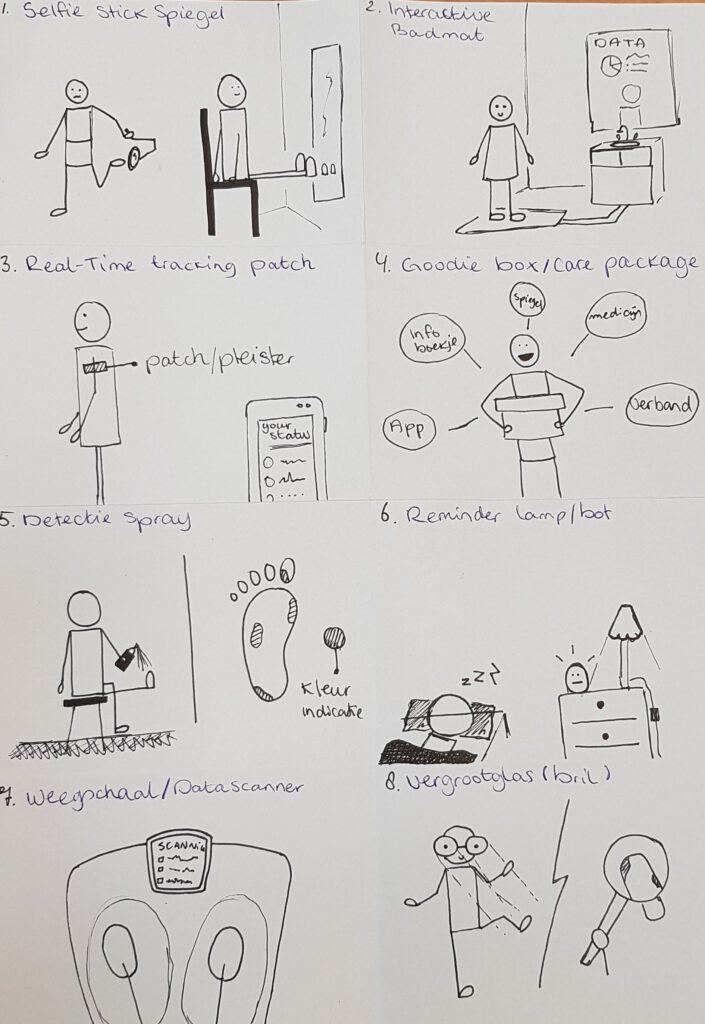 1. Selfie Stick Spiegel
2. Interactive
Badmat
DATA
3. Real-Time tracking patch
patch/pleister
your
status
4. Goodie box/care package
spiegel
medicijn
Info
boekje
App
verband
5. Detectie Spray
Kleur
indicatie
6. Reminder lamp/bot
zzz
7. Weegschaal/Datascanner
SCANNING
8. Vergrootglas (bril)